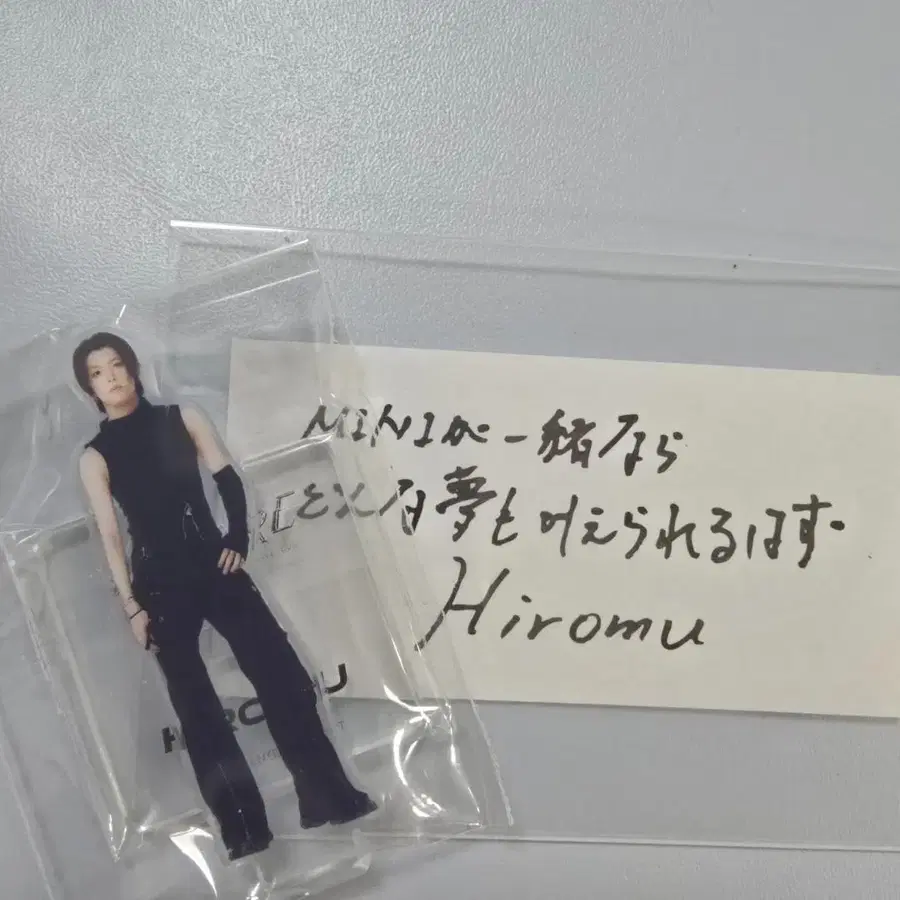 MINIが一緒なら
どんな夢も叶えられるはず。
Hiromu
HIROMU